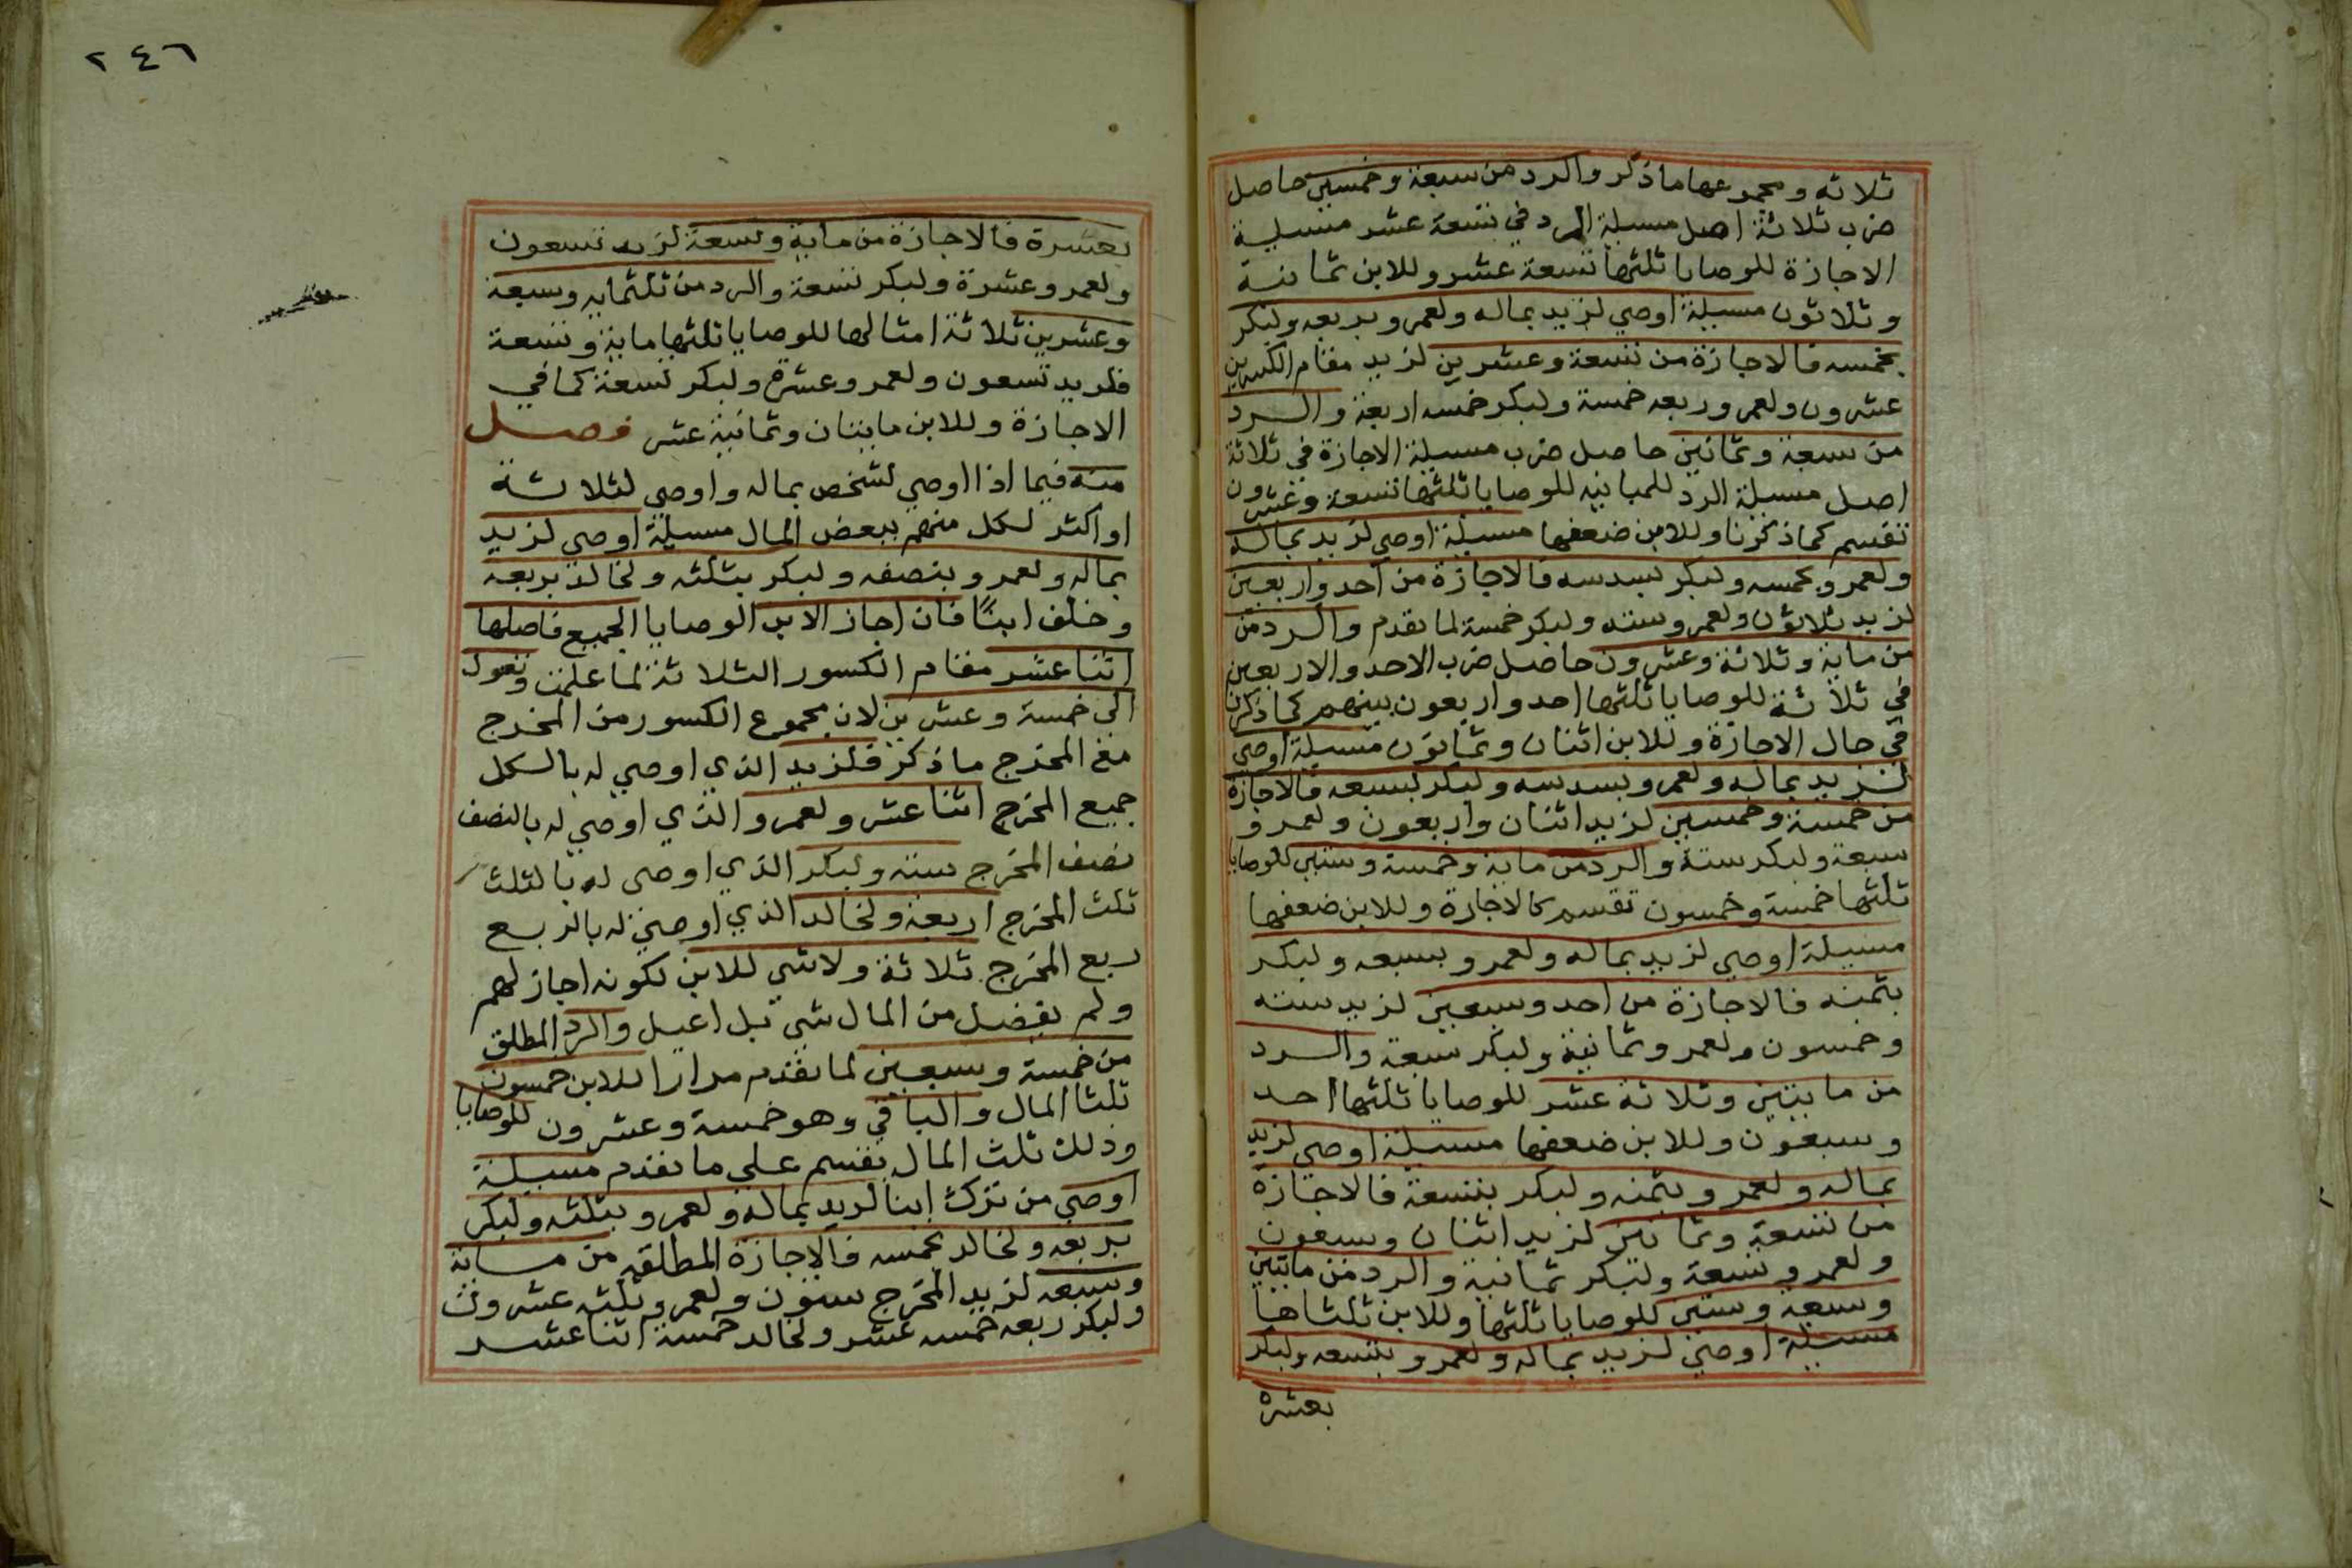 ثلاثه ومجموعها ما ذكر والرد من سبعة وخمسين حاصل
ضرب ثلاثة اصل مسيلة الرد في تسعة عشر مسيلة
الاجازة للوصايا ثلثها تسعة عشر وللابن ثمانية
وثلاثون مسيلة اوصي لزيد بماله ولعمرو بربعه ولبكر
بخمسه فالاجازة من تسعة وعشرين لزيد مقام الكسرين
عشرون ولعمرو ربعه خمسة ولبكر خمسه اربعة والرد
من سبعة وثمانين حاصل ضرب مسيلة الاجازة في ثلاثة
اصل مسيلة الرد للمباينه للوصايا ثلثها تسعة وعشرون
تقسم كما ذكرنا وللابن ضعفها مسيلة اوصي لزيد بماله
ولعمرو بخمسه ولبكر بسدسه فالاجازة من احد واربعين
لزيد ثلاثون ولعمرو سته ولبكر خمسة لما تقدم والرد من
من ماية وثلاثة وعشرون حاصل ضرب الاحد والاربعين
في ثلاثة للوصايا ثلثها احد واربعون بينهم كما ذكرنا
في حال الاجازة وللابن اثنان وثمانون مسيلة اوصي
لزيد بماله ولعمرو بسدسه ولبكر بسبعه فالاجازة
من خمسة وخمسين لزيد اثنان واربعون ولعمرو
سبعة ولبكر ستة والرد من ماية وخمسة وستين للوصايا
ثلثها خمسة وخمسون تقسم كالاجازة وللابن ضعفها
مسيلة اوصي لزيد بماله ولعمرو بسبعه ولبكر
بثمنه فالاجازة من احد وسبعين لزيد سته
وخمسون ولعمرو ثمانية ولبكر سبعة والرد
من مايتين وثلاثة عشر للوصايا ثلثها احد
وسبعون وللابن ضعفها مسيلة اوصي لزيد
بماله ولعمرو بثمنه ولبكر بتسعة فالاجازة
من تسعة وثمانين لزيد اثنان وسبعون
ولعمرو تسعة ولبكر ثمانية والرد من مايتين
وسبعة وستين للوصايا ثلثها وللابن ثلثاها
مسيلة اوصي لزيد بماله ولعمرو بتسعه ولبكر
بعشره
٢٤٦
بعشرة فالاجازة من ماية وتسعة لزيد تسعون
ولعمرو عشرة ولبكر تسعة والرد من ثلثمايه وسبعة
وعشرين ثلاثة امثالها للوصايا ثلثها ماية وتسعة
فلزيد تسعون ولعمرو عشرة ولبكر تسعة كما في
الاجازة وللابن مايتان وثمانية عشر فصل
منه فيما اذا اوصي لشخص بماله واوصي لثلاثة
او اكثر لكل منهم ببعض المال مسيلة اوصي لزيد
بماله ولعمرو بنصفه ولبكر بثلثه ولخالد بربعه
وخلف ابنًا فان اجاز الابن الوصايا الجميع فاصلها
اثنا عشر مقام الكسور الثلاثة لما علمت وتعول
الي خمسة وعشرين لان مجموع الكسور من المخرج
مع المخرج ما ذكر فلزيد الذي اوصي له بالكل
جميع المخرج اثنا عشر ولعمرو الذي اوصي له بالنصف
نصف المخرج سته ولبكر الذي اوصي له بالثلث
ثلث المخرج اربعة ولخالد الذي اوصي له بالربع
ربع المخرج ثلاثة ولا شي للابن لكونه اجاز لهم
ولم يفضل من المال شي بل اعيل والرد المطلق
من خمسة وسبعين لما تقدم مرارا للابن خمسون
ثلثا المال والباقي وهو خمسة وعشرون للوصايا
وذلك ثلث المال يقسم علي ما تقدم مسيلة
اوصي من ترك ابنا لزيد بماله ولعمرو بثلثه ولبكر
بربعه ولخالد بخمسه فالاجازة المطلقه من ماية
وسبعه لزيد المخرج ستون ولعمرو ثلثه عشرون
ولبكر ربعه خمسه عشر ولخالد خمسة اثنا عشر